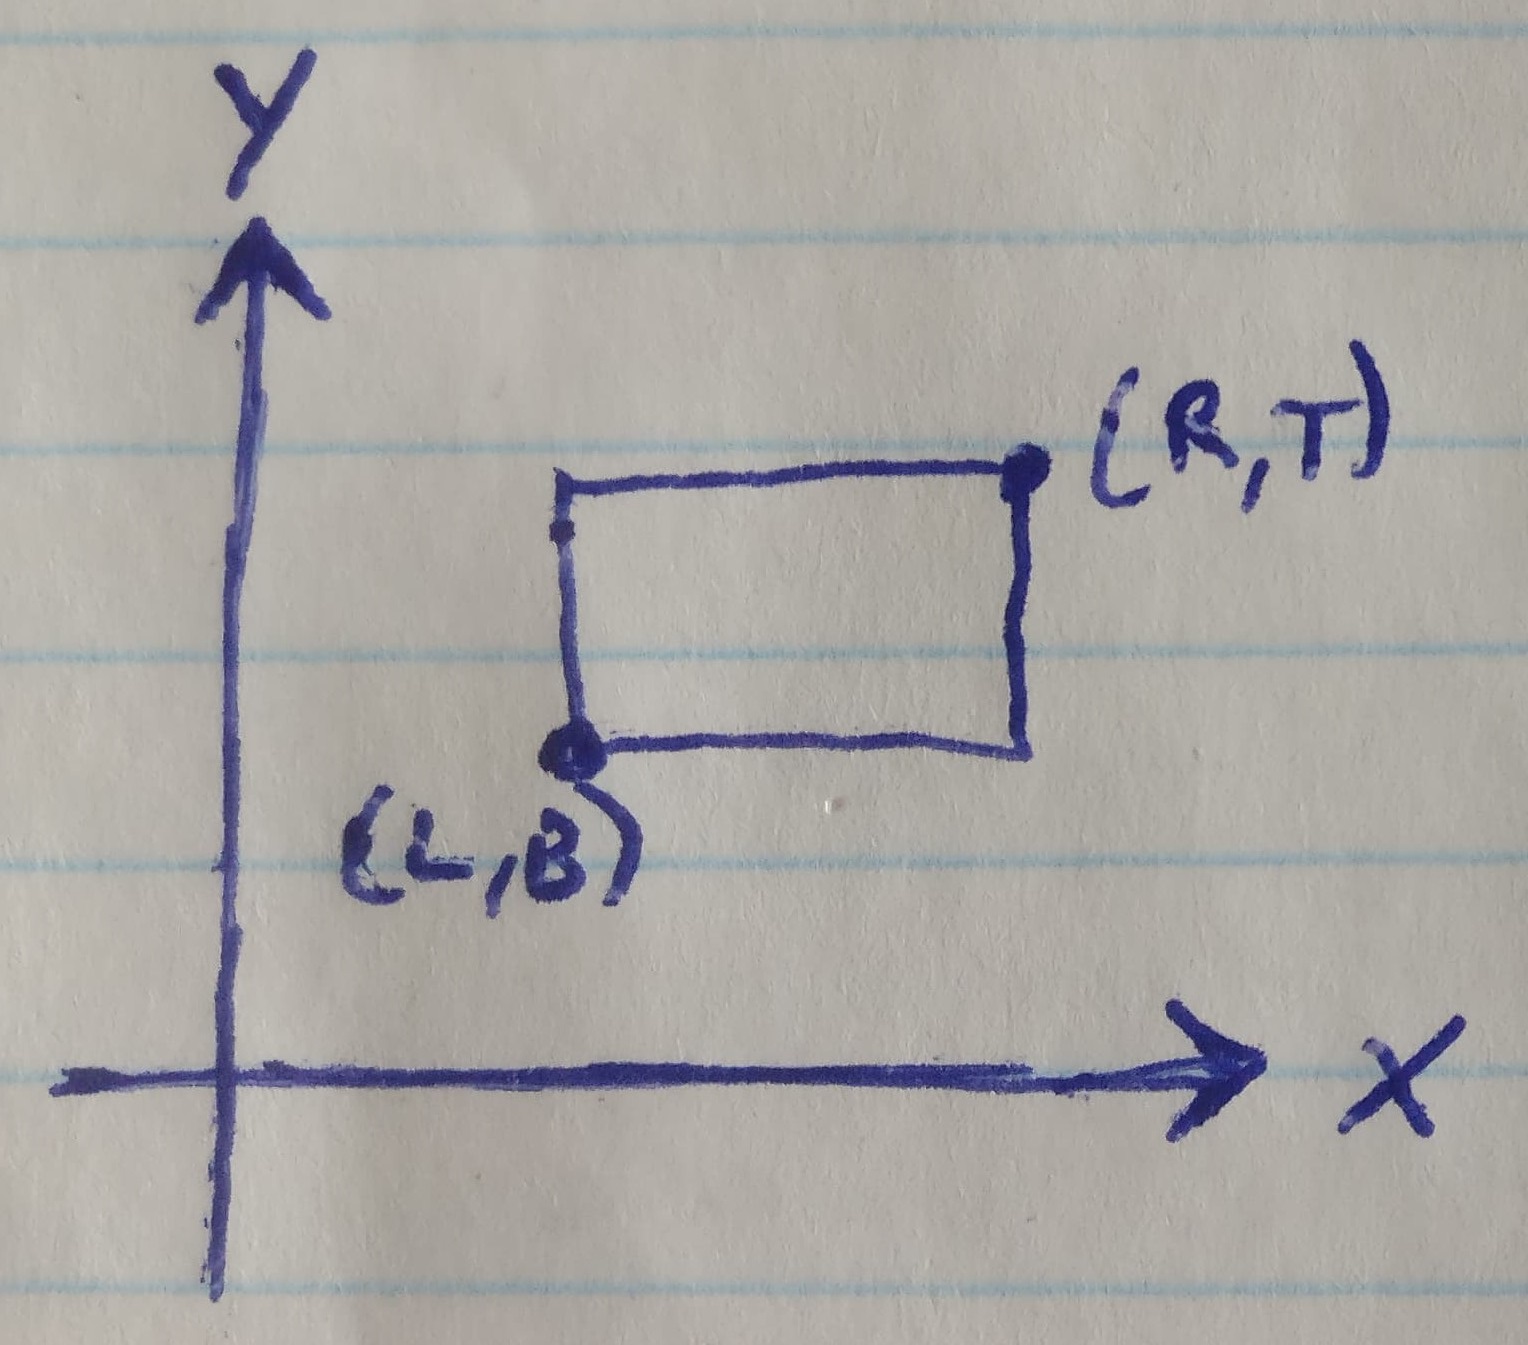 Y
(R,T)
(L,B)
X